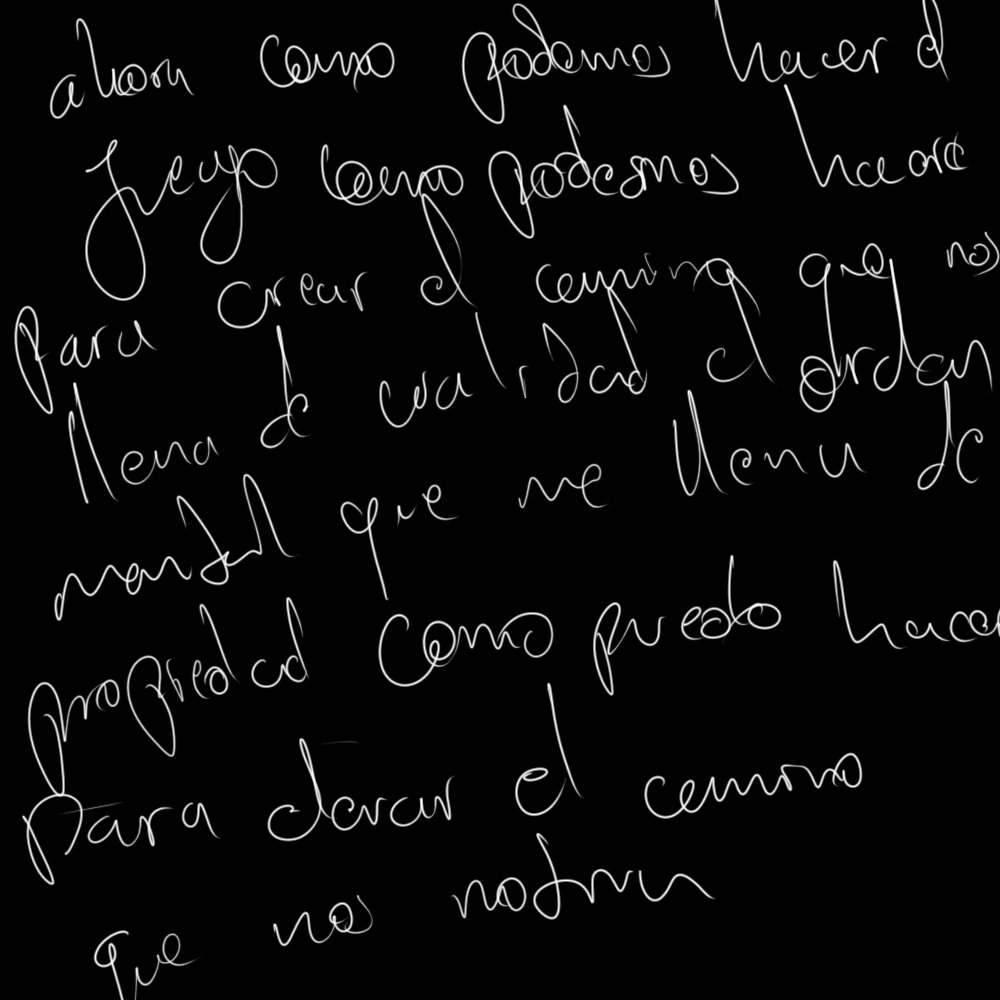 ahora como podemos hacer el
juego como podemos hacer
Para crear el camino que nos
llena de calidad el orden
mental que me llena de
propiedad como puedo hacer
Para elevar el camino
que nos